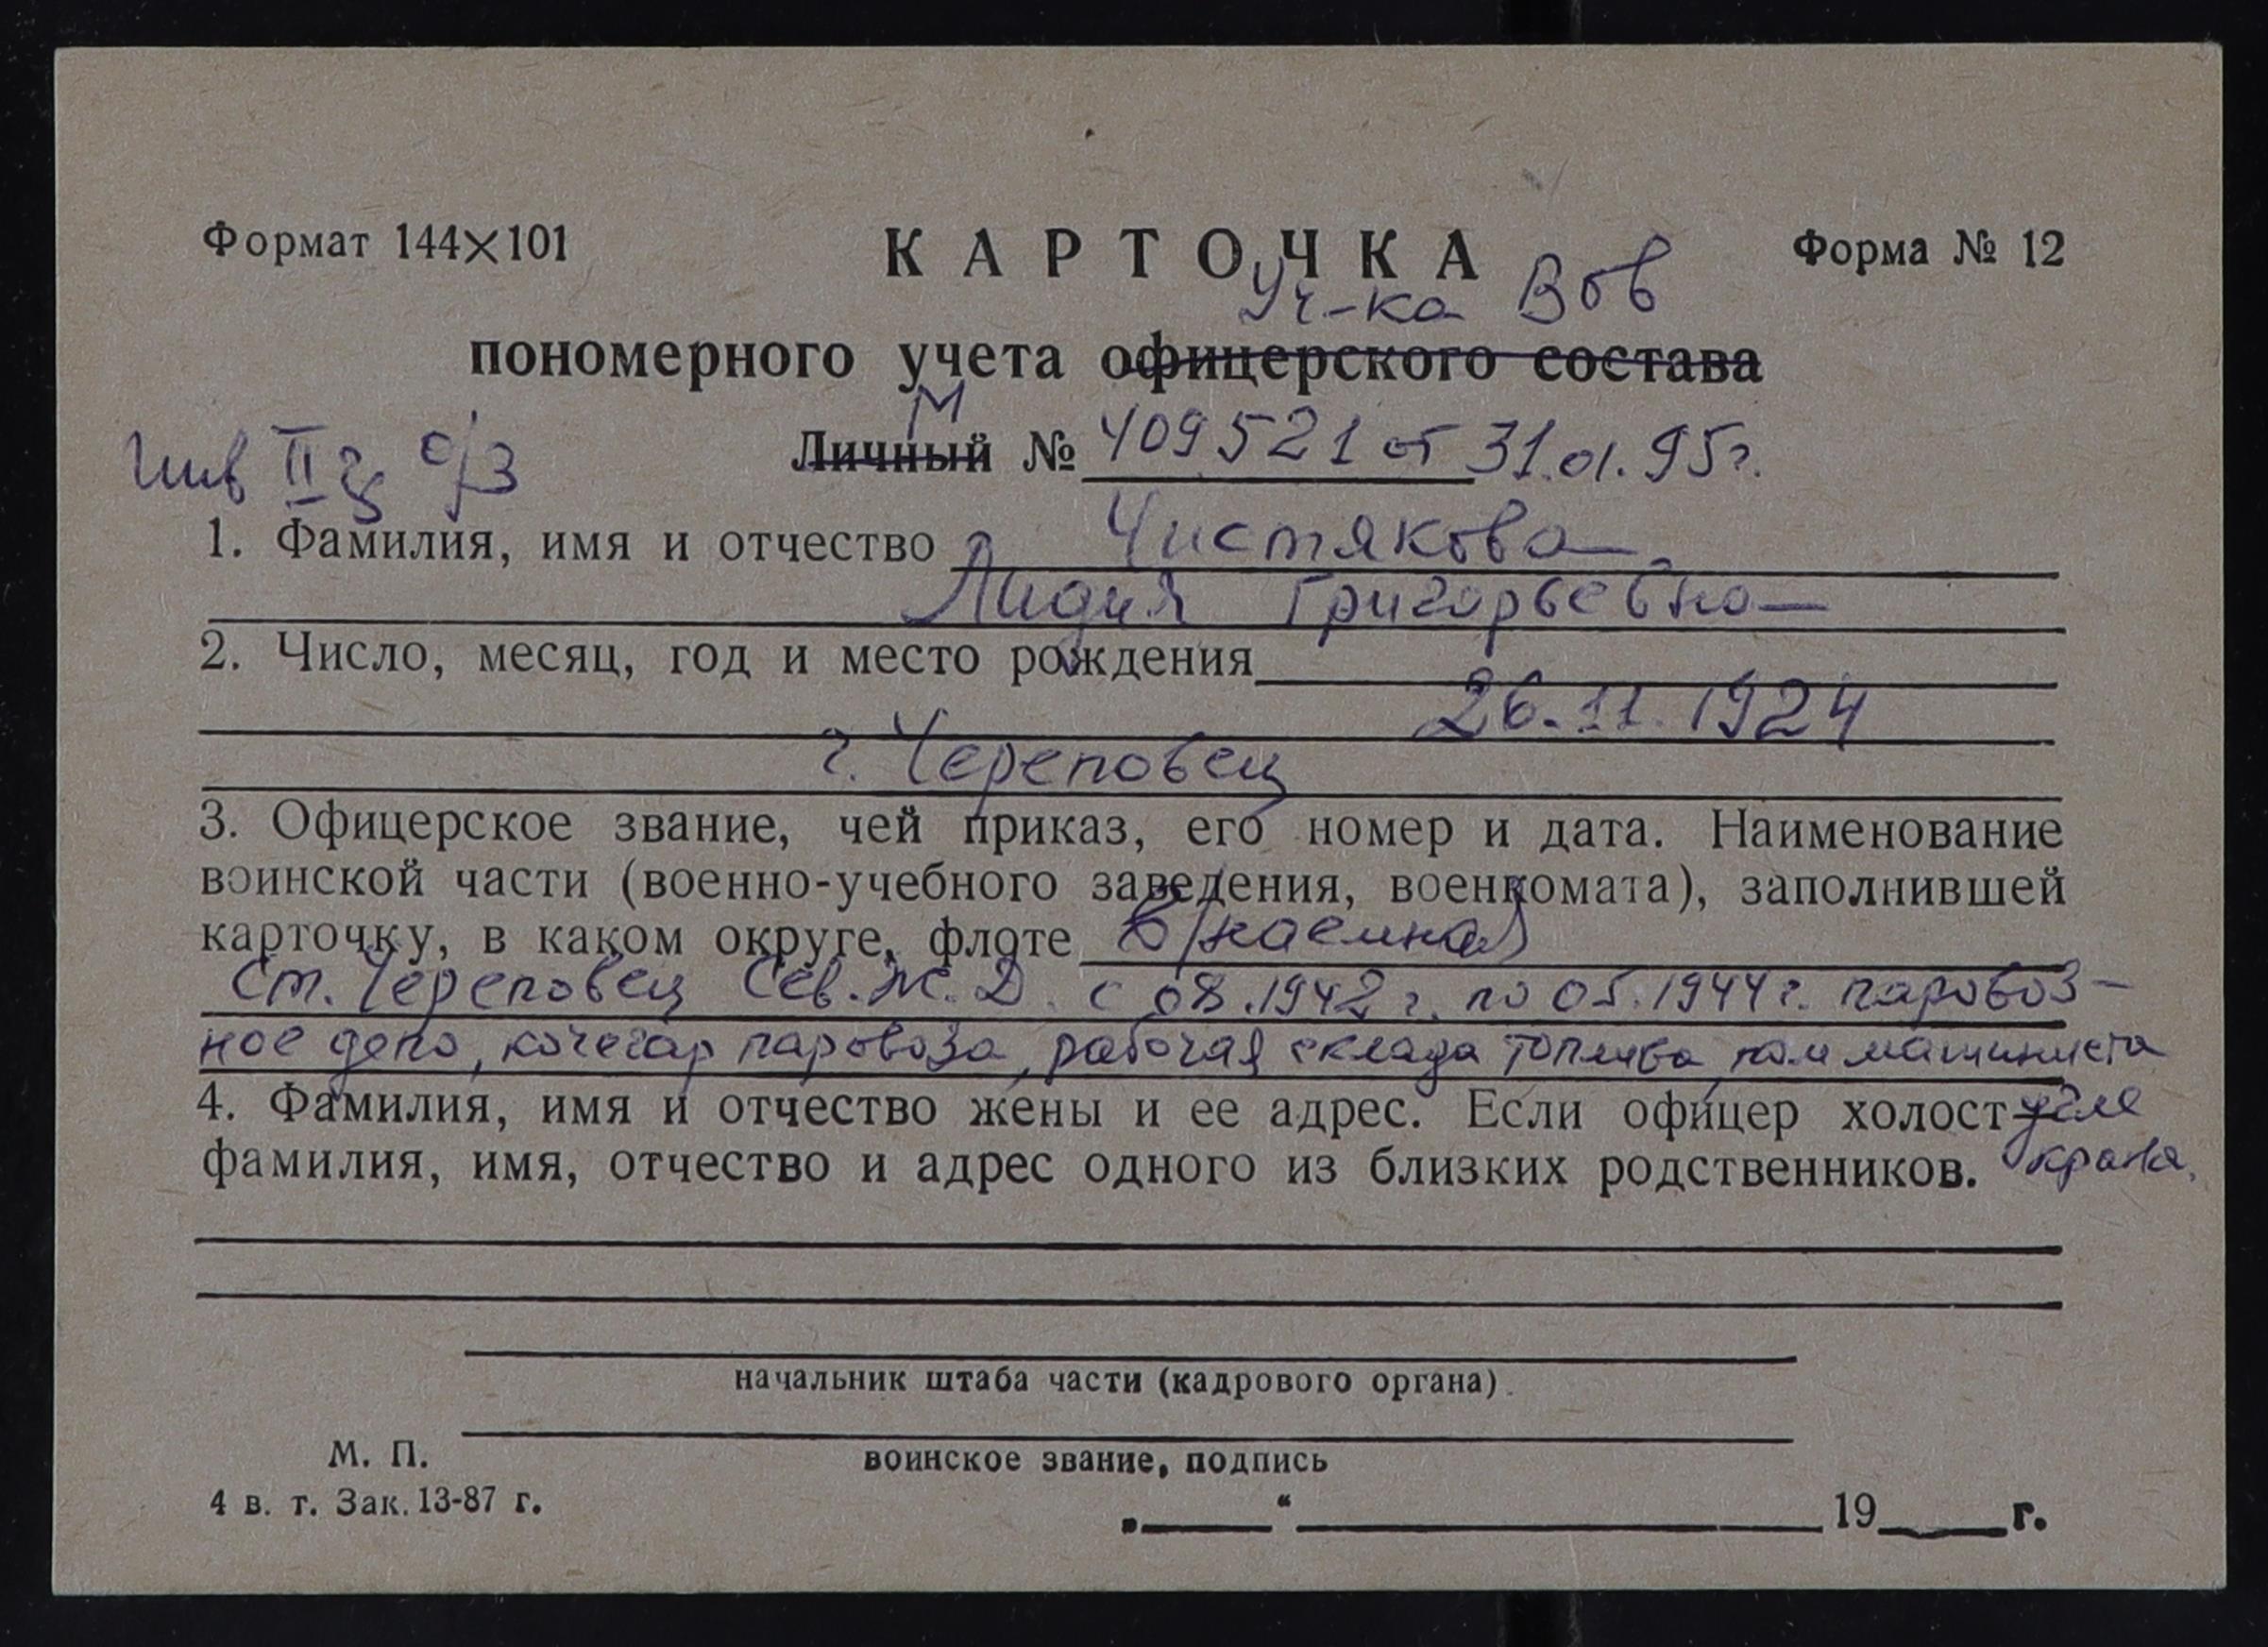 Формат 144×101 КАРТОЧКА Форма № 12
Уч-ка Вов
пономерного учета офицерского состава
М
Инв II гр о/з Личный № 409521 от 31.01.95г.
1. Фамилия, имя и отчество Чистякова
Лидия Григорьевна
2. Число, месяц, год и место рождения
26.11.1924
г. Череповец
3. Офицерское звание, чей приказ, его номер и дата. Наименование
воинской части (военно-учебного заведения, военкомата), заполнившей
карточку, в каком округе, флоте В/наемная
Ст. Череповец Сев. Ж. Д. с 08.1942 г. по 05.1944 г. паровоз-
ное депо, кочегар паровоза, рабочая склада топлива, пом машиниста
4. Фамилия, имя и отчество жены и ее адрес. Если офицер холост
фамилия, имя, отчество и адрес одного из близких родственников. крана.
начальник штаба части (кадрового органа).
М. П.
воинское звание, подпись
4 в. т. Зак. 13-87 г.
„ “ 19 г.